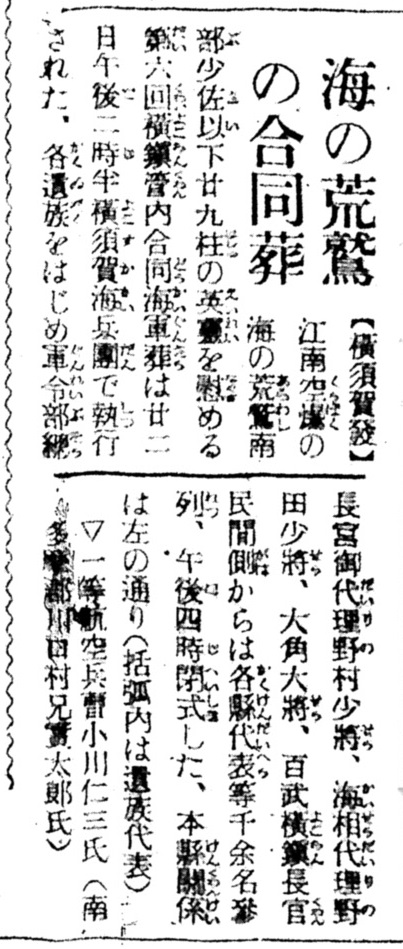 海の荒鷲
の合同葬
【横須賀發】
江南空爆の
海の荒鷲南
部少佐以下廿九柱の英靈を慰める
第六回横鎭管内合同海軍葬は廿二
日午後二時半横須賀海兵團で執行
された、各遺族をはじめ軍令部總
長宮御代理野村少將、海相代理野
田少將、大角大將、百武横鎭長官
民間側からは各縣代表等千余名參
列、午後四時閉式した、本縣關係
は左の通り(括弧内は遺族代表)
▽一等航空兵曹小川仁三氏(南
多摩郡川口村兄實太郎氏)